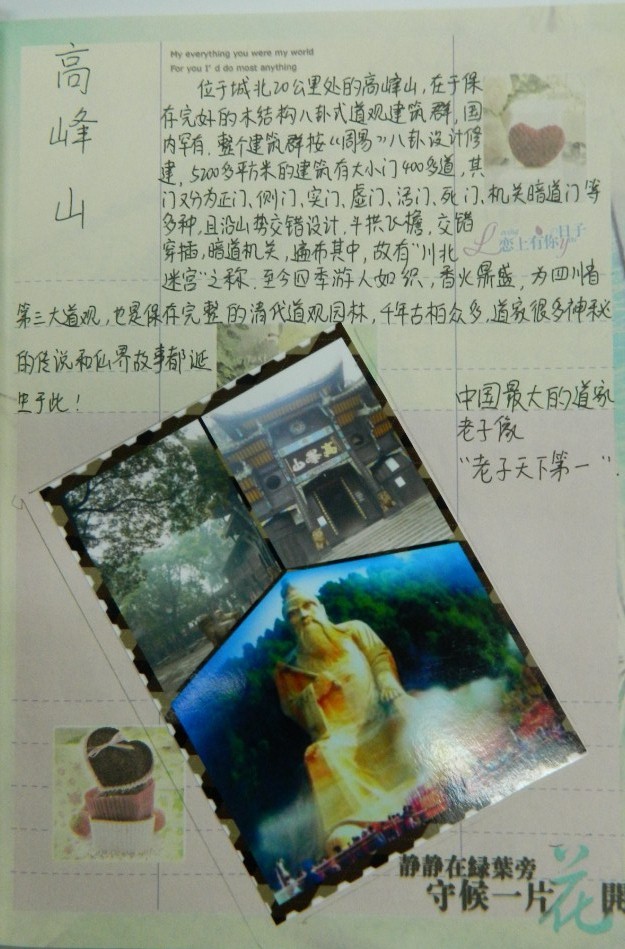 高峰山
My everything you were my world
For you I' d do most anything
位于城北20公里处的高峰山,在于保
存完好的木结构八卦式道观建筑群,国
内罕有.整个建筑群按《周易》八卦设计修
建,5200多平方米的建筑有大小门400多道,其
门又分为正门、侧门、实门、虚门、活门、死门、机关暗道门等
多种,且沿山势交错设计,斗拱飞檐,交错
穿插,暗道机关,遍布其中,故有"川北
迷宫"之称.至今四季游人如织,香火鼎盛,为四川省
第三大道观,也是保存完整的清代道观园林,千年古柏众多,道家很多神秘
的传说和仙界故事都诞
生于此!
恋上有你日子
中国最大的道家
老子像
"老子天下第一".
高峰山
静静在緑葉旁
守候一片花開